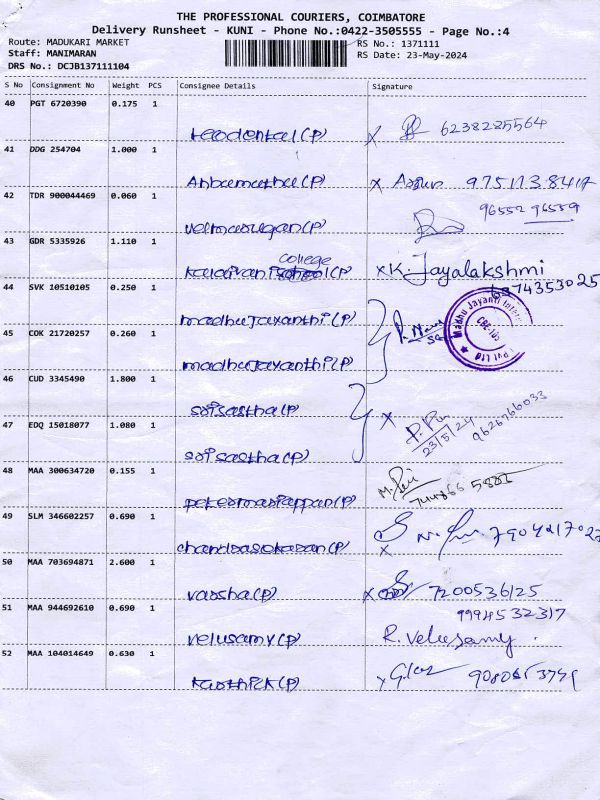 THE PROFESSIONAL COURIERS, COIMBATORE
Delivery Runsheet - KUNI - Phone No.:0422-3505555 - Page No.:4
Route: MADUKARI MARKET
RS No.: 1371111
Staff: MANIMARAN
RS Date: 23-May-2024
DRS No.: DCJB137111104
S No Consignment No Weight PCS Consignee Details Signature
40 PGT 6720390 0.175 1
teodental(P) x 6238285564
41 DDG 254704 1.000 1
Anbumathu(P) x 9751738417
42 TDR 900044469 0.060 1
velmurugan(P) 96552 96559
43 GDR 5335926 1.110 1
college
kalaivani (P) x K. Jayalakshmi
6374353025
44 SVK 10510105 0.250 1
madhujayanthi(P)
Madhu Jayanti
Pvt Ltd
45 COK 21720257 0.260 1
madhujayanthi(P)
46 CUD 3345490 1.800 1
srisastha(P) x
23/5/24 9626766033
47 EDQ 15018077 1.080 1
srisastha(P)
48 MAA 300634720 0.155 1
petermariappan(P)
49 SLM 346602257 0.690 1
chandrasekaran(P) x 7904217027
50 MAA 703694871 2.600 1
varsha(P) x 7200536125
51 MAA 944692610 0.690 1
9994532317
velusamy(P) R. Velusamy.
52 MAA 104014649 0.630 1
karthick(P) x